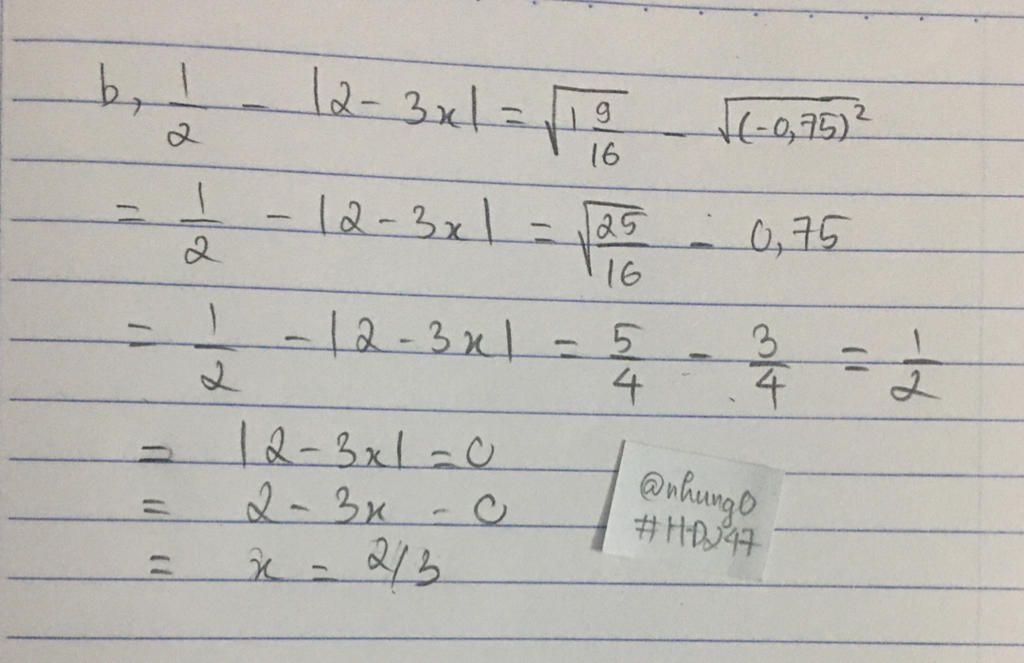 b, 1/2 - |2 - 3x| = √(1 9/16) - √((-0,75)²)
= 1/2 - |2 - 3x| = √(25/16) - 0,75
= 1/2 - |2 - 3x| = 5/4 - 3/4 = 1/2
= |2 - 3x| = 0
= 2 - 3x - 0
= x = 2/3
@nhung0
#HD247